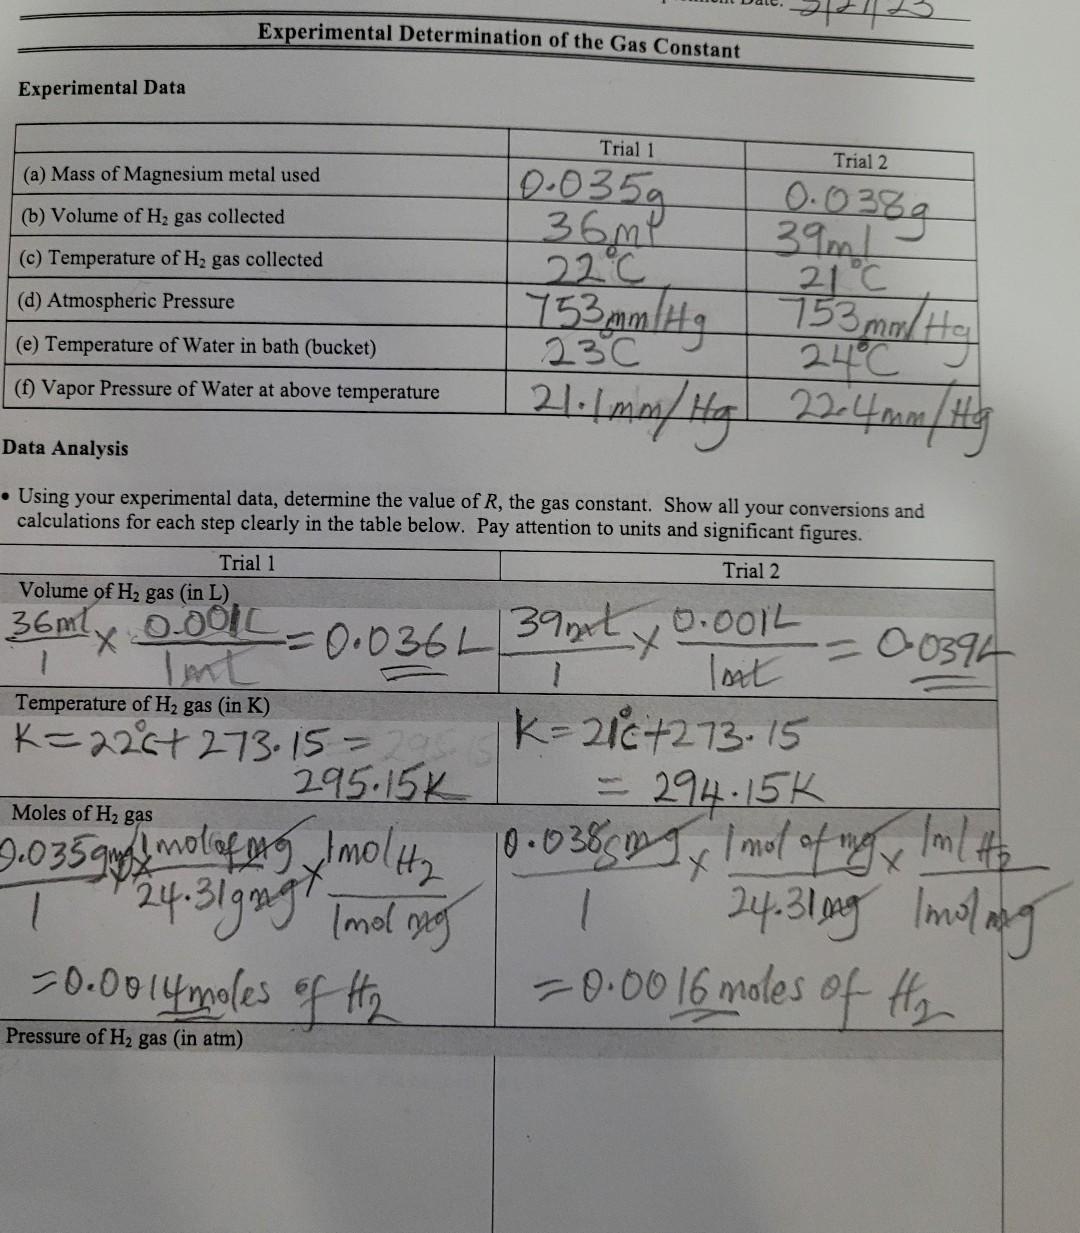 Date: 3/21/23
Experimental Determination of the Gas Constant
Experimental Data
Trial 1 Trial 2
(a) Mass of Magnesium metal used 0.035g 0.038g
(b) Volume of H₂ gas collected 36ml 39ml
(c) Temperature of H₂ gas collected 22°C 21°C
(d) Atmospheric Pressure 753mm/Hg 753mm/Hg
(e) Temperature of Water in bath (bucket) 23°C 24°C
(f) Vapor Pressure of Water at above temperature 21.1mm/Hg 22.4mm/Hg
Data Analysis
• Using your experimental data, determine the value of R, the gas constant. Show all your conversions and
calculations for each step clearly in the table below. Pay attention to units and significant figures.
Trial 1 Trial 2
Volume of H₂ gas (in L)
36ml/1 x 0.001L/1ml = 0.036L 39ml/1 x 0.001L/1ml = 0.039L
Temperature of H₂ gas (in K)
K=22°C+273.15= K=21°C+273.15
295.15K = 294.15K
Moles of H₂ gas
0.035gmg/1 x 1molofmg/24.31gmg x 1molH₂/1mol mg 0.038gmg/1 x 1mol of mg/24.31mg x 1ml H₂/1mol mg
=0.0014moles of H₂ =0.0016 moles of H₂
Pressure of H₂ gas (in atm)